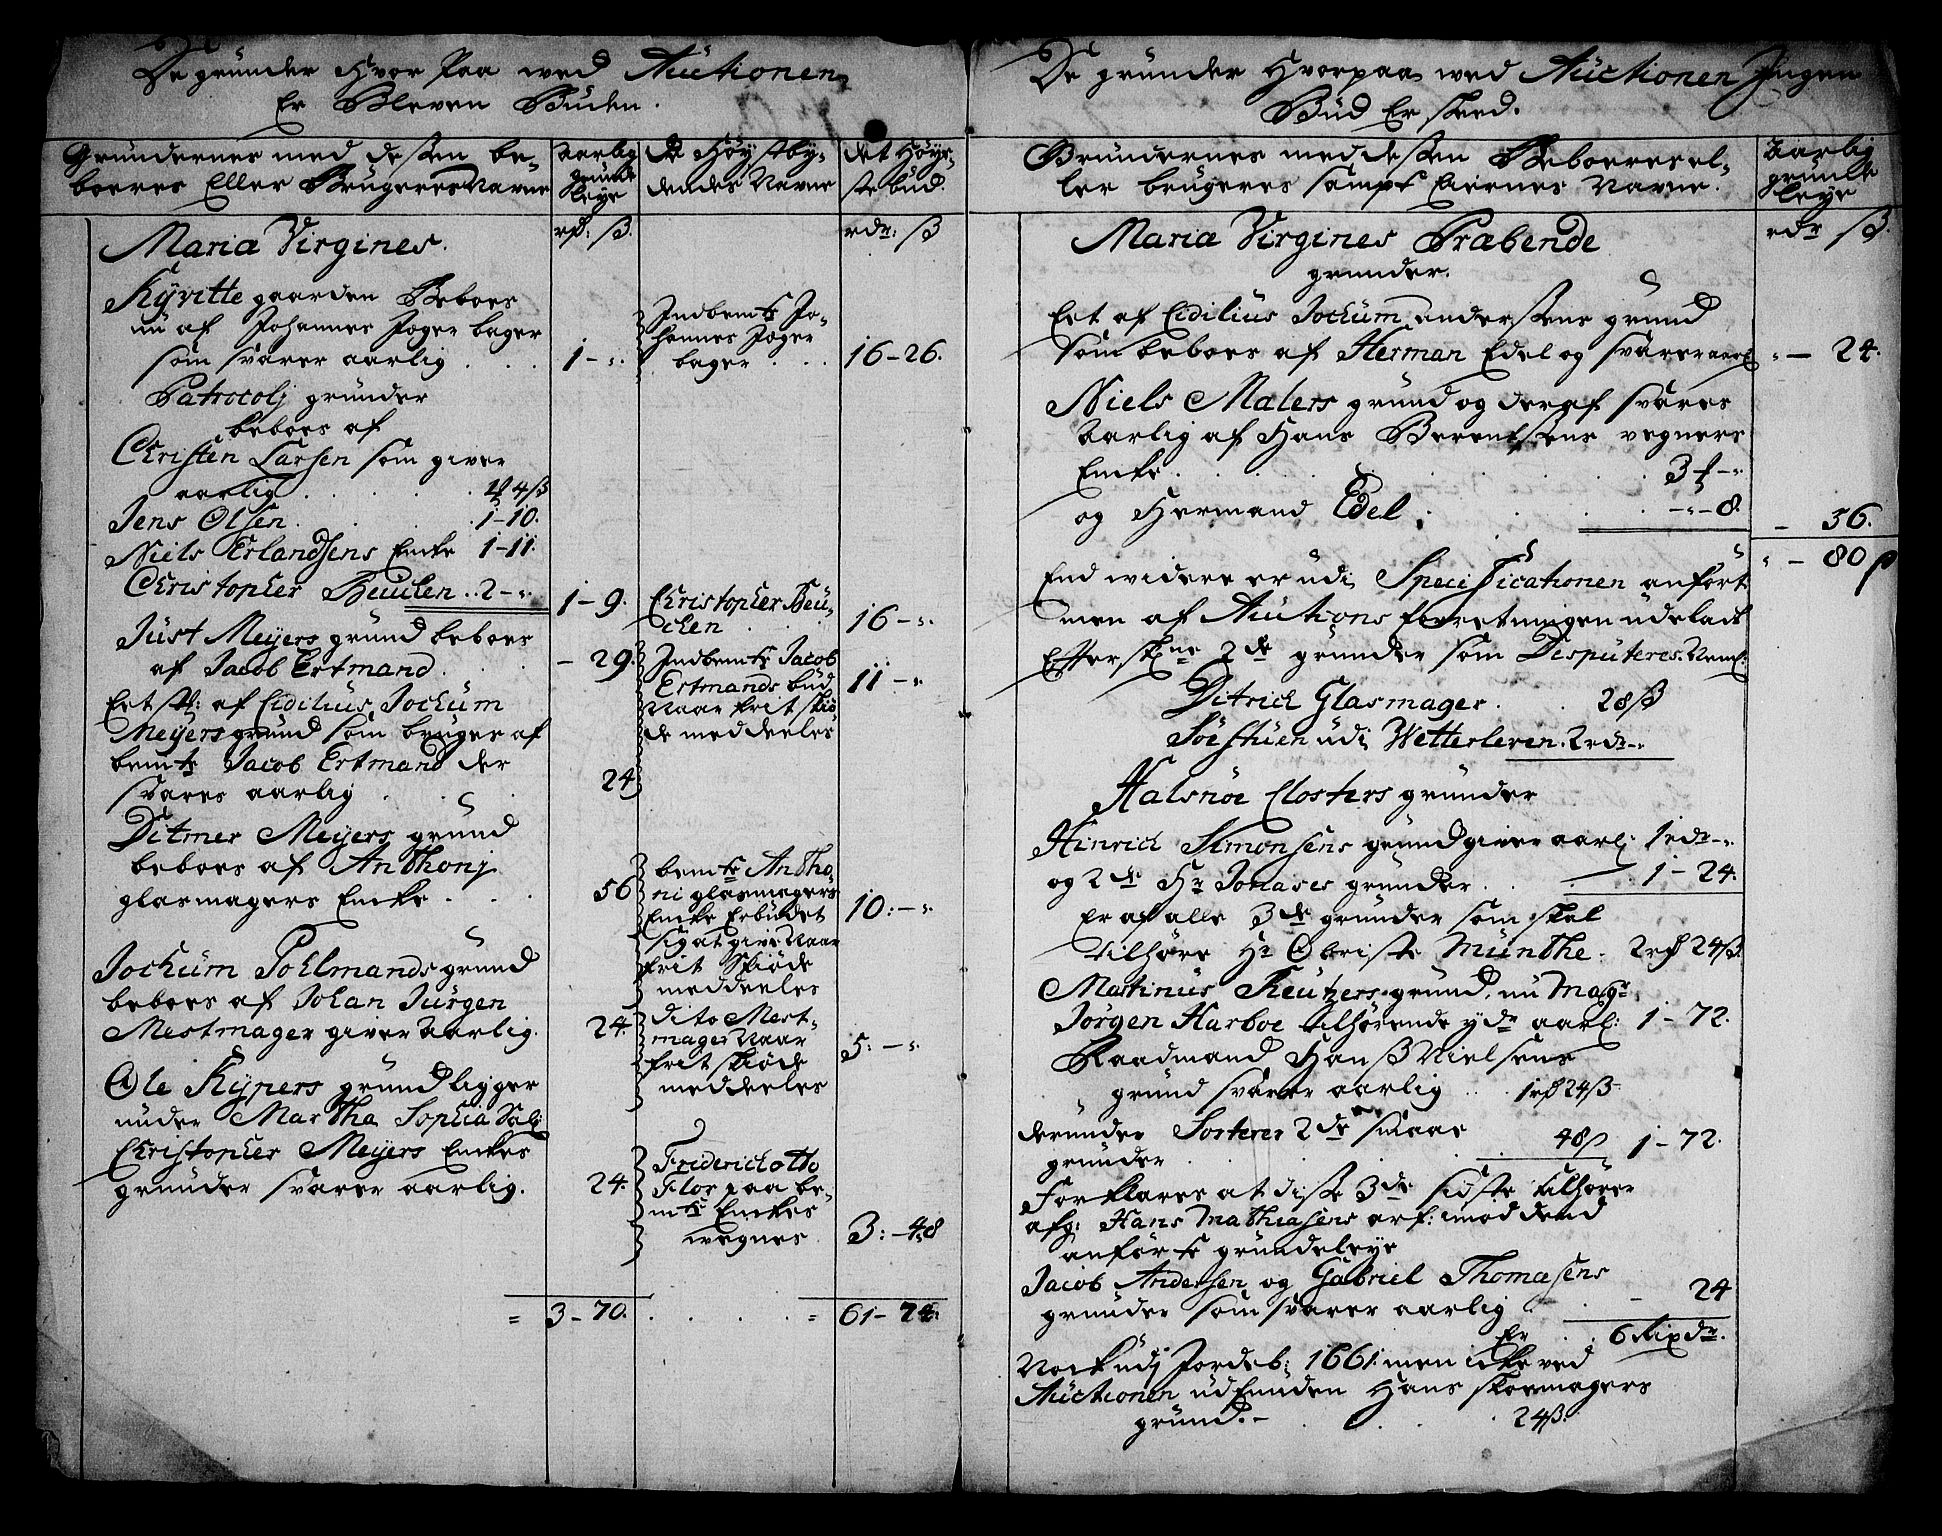 De grunder Hvor Paa wed Auctionen
Er Bleven Buden.
Grundernes med dessen be-
boeres Eller Brugeres Navne
Aarlig
grunde
Leye
De Høystby-
dendes Navne
det Høy-
ste bud.
rd: ß.
rdr: ß
Maria Virgines.
Kyvitte gaarden Beboes
nu af Johannes Joger bager
som svarer aarlig . . . 1 - ".
Indbemte Jo-
hannes Joger
bager . . . 16 - 26.
Patrocolj grunder
beboes af
Christen Larsen som giver
aarlig . . . . 1f 4ß
Jens Olsen . . . . 1 - 10.
Niels Erlandsens Encke 1 - 11.
Christopher Beuchen .. 2 - ". 1 - 9.
Christopher Beu-
chen . . . 16 - ".
Just Meyers grund beboes
af Jacob Ertmand . . - 29.
Indbemte Jacob
Ertmands bud
Naar frit skiö-
de meddeeles
11 - ".
Eet st: af Eidilius Jochum
Meyers grund som bruges af
bemte Jacob Ertmand der
svares aarlig . . . 24
Ditmer Meyers grund
beboes af Anthonj
glasmagers Encke . . . 56
bemte Antho
ni glasmagers
Encke Erbudet
sig at give Naar
frit Skiöde
meddeeles
10: - ".
Jochum Pohlmands grund
beboes af Johan Jürgen
Mestmager giver Aarlig. 24.
dito Mest-
mager Naar
frit skiöde
meddeeles
5: - ".
Ole Kypers grund ligger
under Martha Sophia Sal:
Christopher Meyers Enckes
grunder svarer aarlig. 24.
Friderich otto
Flor paa be-
mte Enckes
wegnes. 3: - 48
= 3 - 70. . . . . = 61 - 74.
De grunder Hvorpaa wed Auctionen Ingen
Bud Er skeed.
Grundernes med dessen Beboeres el-
ler brugeres sampt Eiernes Navne.
Aarlig
grunde
Leye
rdr ß.
Maria Virgines Præbende
grunder.
Eet af Eidilius Jochum anderssens grund
som beboes af Herman Edel og svarer aarl " - 24.
Niels Malers grund og deraf svares
Aarlig af Hans Berentsens vegners
Encke . . . . . 3f - "
og Hermand Edel . . . - " - 8. - 56.
" - 80 ß
End widere er udi Specificationen anfört
men af Auctions forretningen udeladt
Effterskne 2de grunder som Disputeres. Neml:
Ditrich Glasmager . . 28ß
Söestuen udi Wetterleven. 2rdr - "
Halsnöe Closters grunder
Hinrich Simonsens grund giver aarl: 1rdr - "
og 2de Hr Jonases grunder . . . 1 - 24.
Er af alle 3de grunder som skal
tilhöre Hr Obriste Munthe. 2rd 24ß
Martinus Keutzers grund, nu Magr
Jörgen Harboe tilhörende yder aarl: 1 - 72.
Raadmand Hanß Nielsens
grund svarer aarlig . . 1rd 24ß
derunder Sorterer 2de smaae
grunder . . . . 48ß 1 - 72.
Forklares at disse 3de sidste tilhörer
afg: Hans Mathiasens arf: imod dend
anförte grundeleye
Jacob Andersen og Gabriel Thomasens
grunder som svarer aarlig . . - 24
Er . . 6 Rixdr.
Nock udj Jordeb: 1661 men icke ved
Auctionen udfunden Hans skoemagers
grund. - . . . . 24ß.